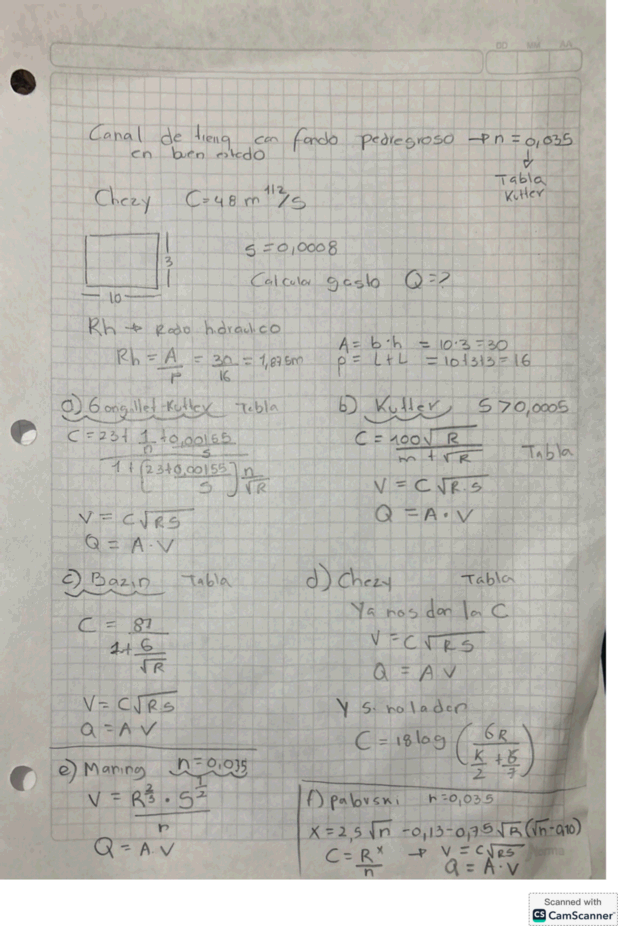 DD MM AA
Canal de tierra con fondo pedregoso → n = 0,035
en buen estado
↓
Tabla
Kutter
Chezy C=48 m^1/2/s
3
S=0,0008
Calcular gasto Q=?
10
Rh → Radio hidraulico
Rh = A/P = 30/16 = 1,875m
A = b·h = 10·3=30
P = L+L = 10+3+3=16
a) Gangillet-Kutter Tabla
C = (23 + 1/n + 0,00155/S) / (1 + [23+0,00155/S] n/√R)
V = C√RS
Q = A·V
b) Kutter S>0,0005
C = 100√R / (m + √R) Tabla
V = C√R.S
Q = A·V
c) Bazin Tabla
C = 87 / (1 + 6/√R)
V = C√RS
Q = A V
d) Chezy Tabla
Ya nos dan la C
V = C√RS
Q = A V
Y si no la dan
C = 18 log (6R / (K/2 + δ/7))
e) Maning n=0,035
V = R^2/3 · S^1/2 / n
Q = A.V
f) pabvski n=0,035
x = 2,5√n - 0,13 - 0,75√R(√n - 0,10)
C = R^x/n → V = C√RS
Q = A·V
Scanned with
CS CamScanner